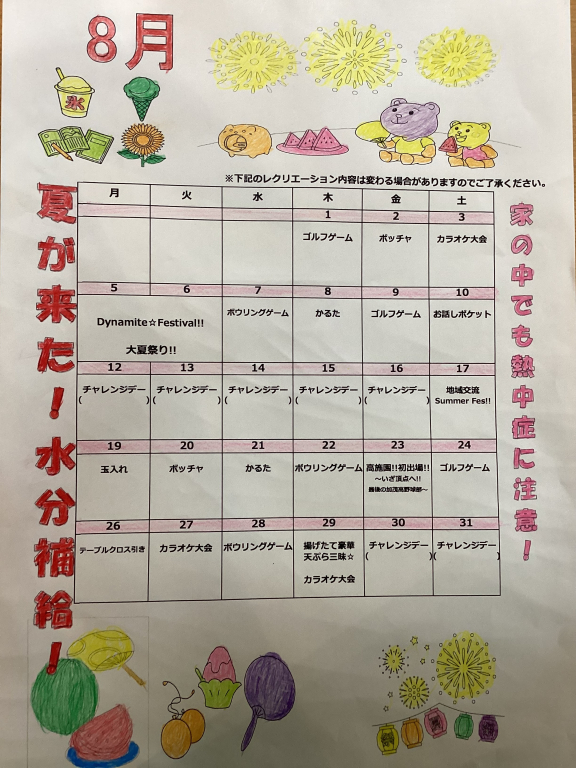 8月
氷
※下記のレクリエーション内容は変わる場合がありますのでご了承ください。
夏が来た！水分補給！
家の中でも熱中症に注意！
月 火 水 木 金 土
1 2 3
ゴルフゲーム ボッチャ カラオケ大会
5 6 7 8 9 10
Dynamite☆Festival!!
大夏祭り!!
ボウリングゲーム かるた ゴルフゲーム お話しポケット
12 13 14 15 16 17
チャレンジデー チャレンジデー チャレンジデー チャレンジデー チャレンジデー 地域交流
( ) ( ) ( ) ( ) ( ) Summer Fes!!
19 20 21 22 23 24
玉入れ ボッチャ かるた ボウリングゲーム 高施園!!初出場!! ゴルフゲーム
～いざ頂点へ!!
最後の加茂高野球部～
26 27 28 29 30 31
テーブルクロス引き カラオケ大会 ボウリングゲーム 揚げたて豪華 チャレンジデー チャレンジデー
天ぷら三昧☆ ( ) ( )
カラオケ大会